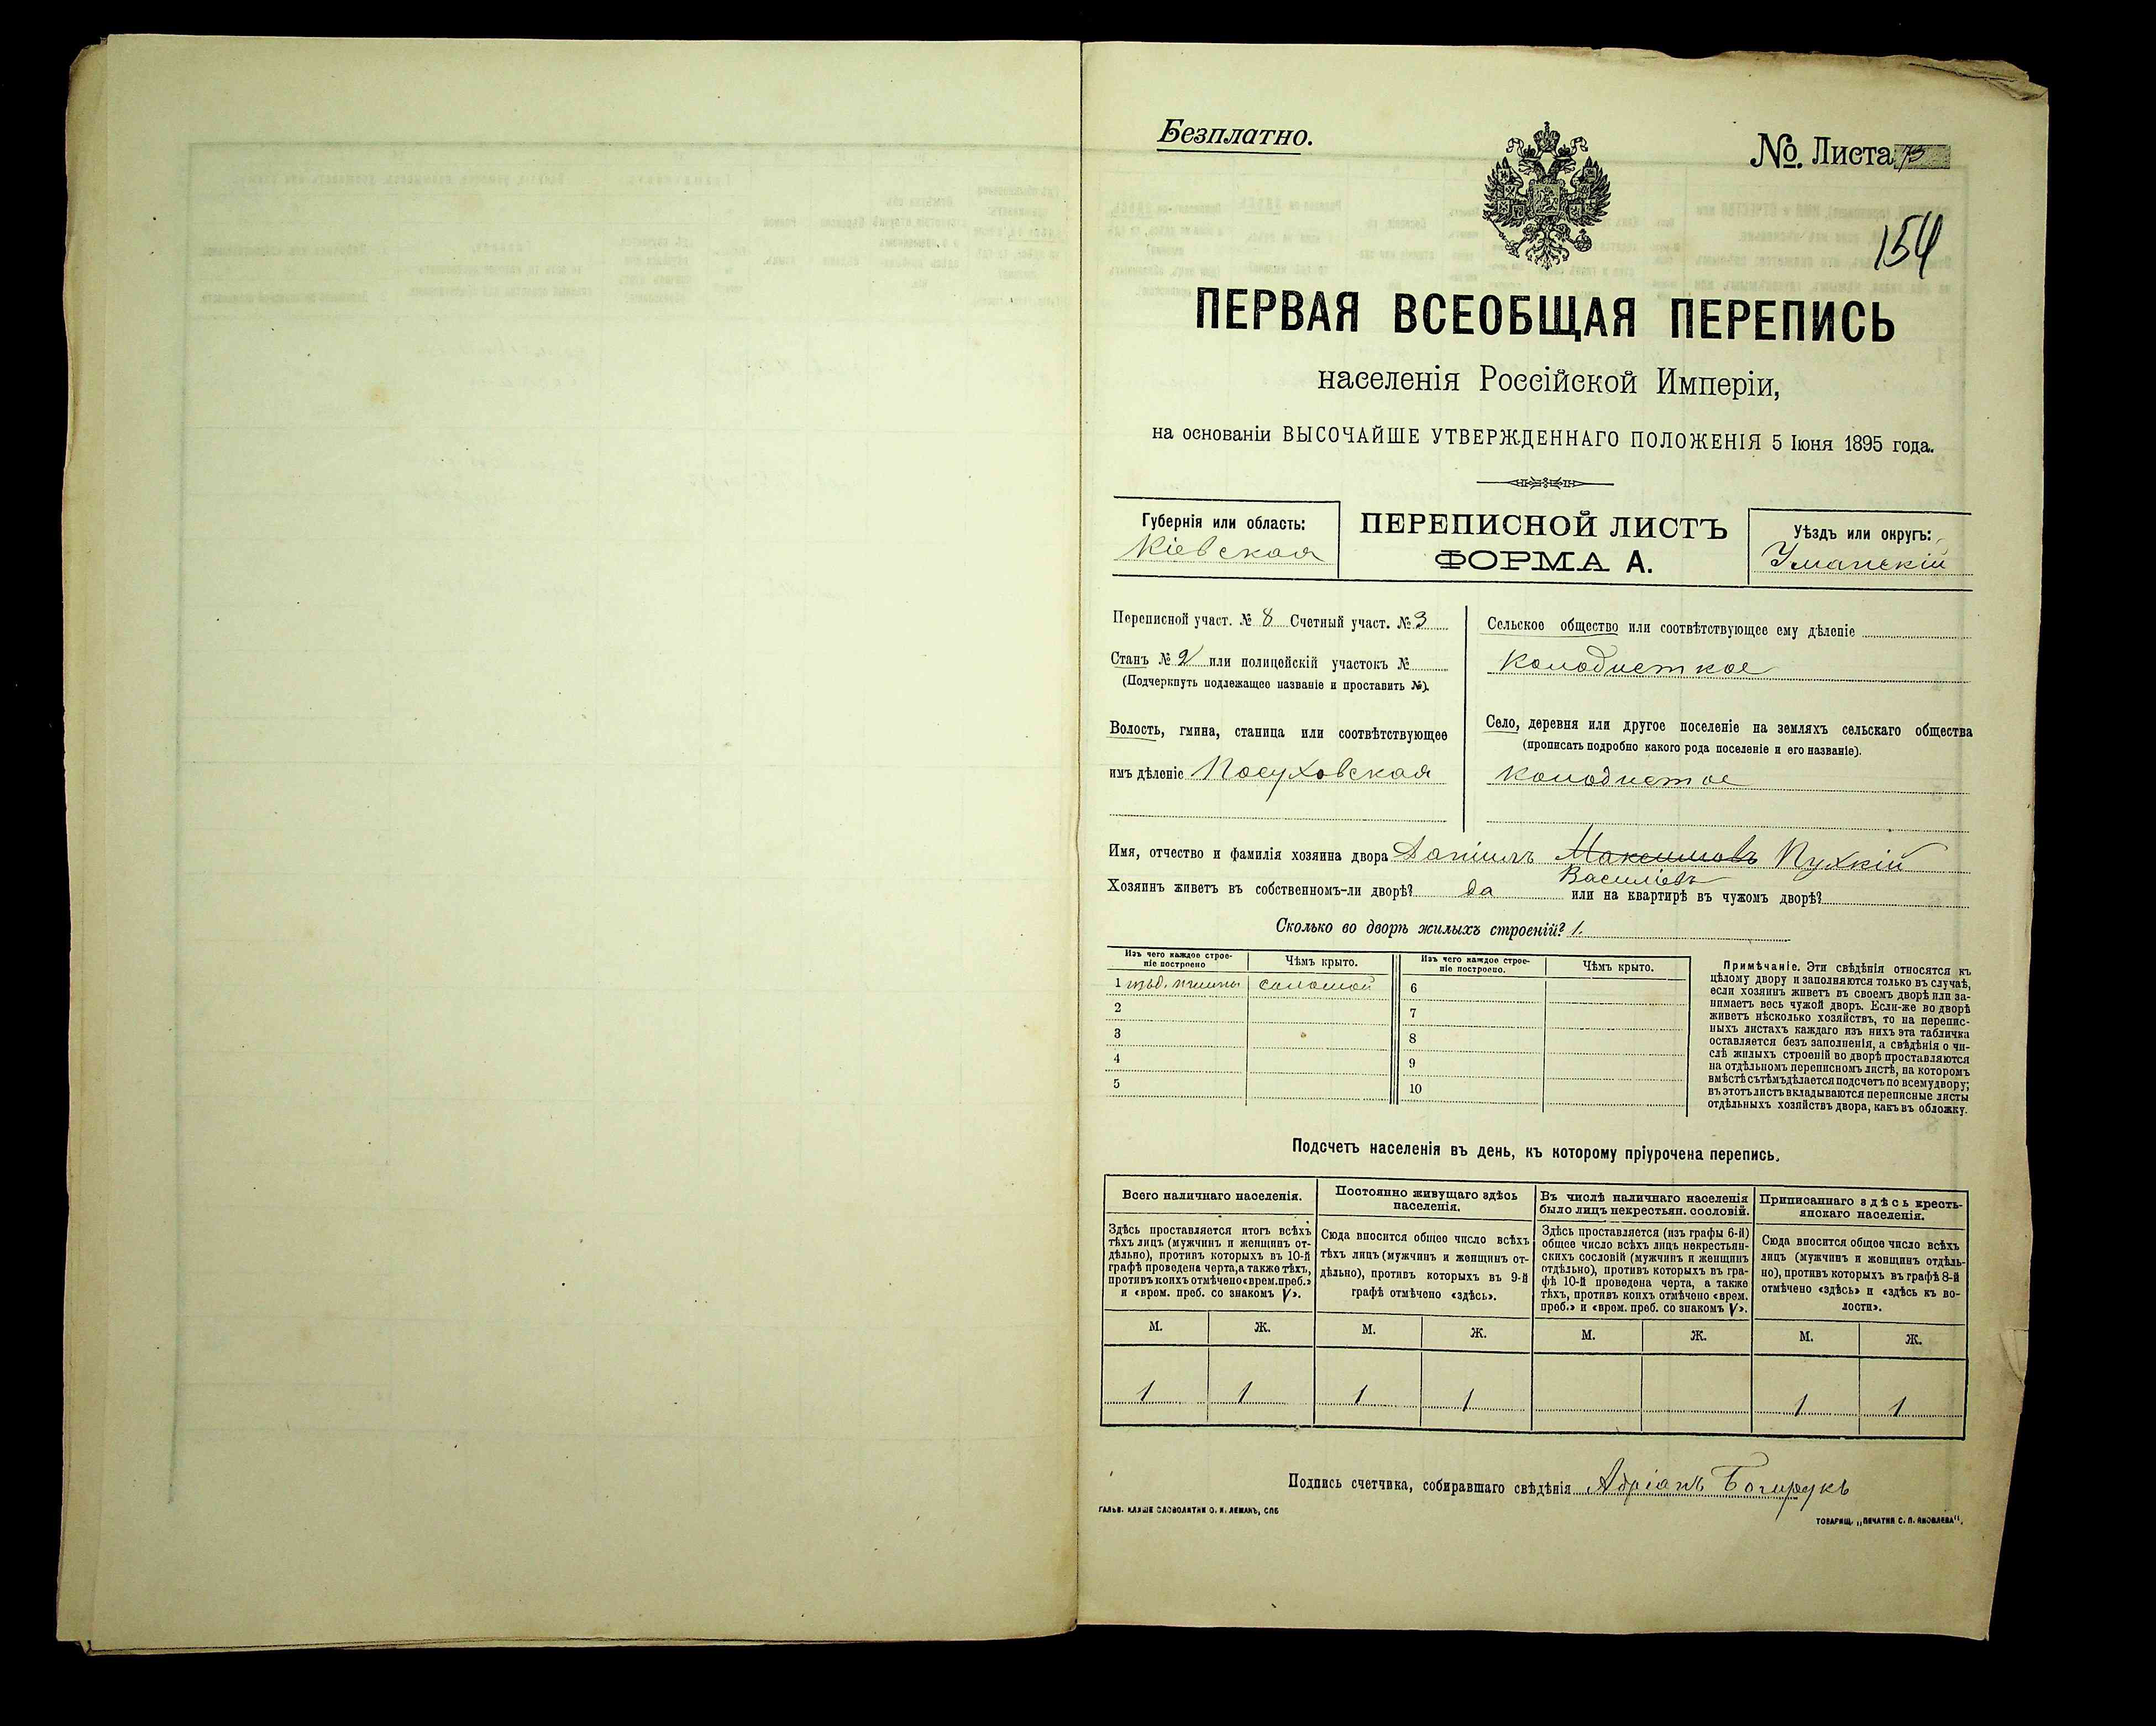 Безплатно.
№. Листа 73
154
ПЕРВАЯ ВСЕОБЩАЯ ПЕРЕПИСЬ
населенія Россійской Имперіи,
на основаніи ВЫСОЧАЙШЕ УТВЕРЖДЕННАГО ПОЛОЖЕНІЯ 5 Іюня 1895 года.
Губернія или область:
Кіевская
ПЕРЕПИСНОЙ ЛИСТЪ
ФОРМА А.
Уѣздъ или округъ:
Уманскій
Переписной участ. № 8 Счетный участ. № 3
Станъ № 2 или полицейскій участокъ №
(Подчеркнуть подлежащее названіе и проставить №).
Волость, гмина, станица или соотвѣтствующее
имъ дѣленіе Посуховская
Сельское общество или соотвѣтствующее ему дѣленіе
Колодисткое
Село, деревня или другое поселеніе на земляхъ сельскаго общества
(прописать подробно какого рода поселеніе и его названіе).
Колодистое
Имя, отчество и фамилія хозяина двора Даніилъ Максимовъ Пухкій
Василіевъ
Хозяинъ живетъ въ собственномъ-ли дворѣ? да или на квартирѣ въ чужомъ дворѣ?
Сколько во дворѣ жилыхъ строеній? 1.
Изъ чего каждое строе-
ніе построено
Чѣмъ крыто.
Изъ чего каждое строе-
ніе построено.
Чѣмъ крыто.
1 изъ глины соломой 6
2 7
3 8
4 9
5 10
Примѣчаніе. Эти свѣдѣнія относятся къ
цѣлому двору и заполняются только въ случаѣ,
если хозяинъ живетъ въ своемъ дворѣ или за-
нимаетъ весь чужой дворъ. Если-же во дворѣ
живетъ нѣсколько хозяйствъ, то на перепис-
ныхъ листахъ каждаго изъ нихъ эта табличка
оставляется безъ заполненія, а свѣдѣнія о чи-
слѣ жилыхъ строеній во дворѣ проставляются
на отдѣльномъ переписномъ листѣ, на которомъ
вмѣстѣ съ тѣмъ дѣлается подсчетъ по всему двору;
въ этотъ листъ вкладываются переписные листы
отдѣльныхъ хозяйствъ двора, какъ въ обложку.
Подсчетъ населенія въ день, къ которому пріурочена перепись.
Всего наличнаго населенія.
Здѣсь проставляется итогъ всѣхъ
тѣхъ лицъ (мужчинъ и женщинъ от-
дѣльно), противъ которыхъ въ 10-й
графѣ проведена черта, а также тѣхъ,
противъ коихъ отмѣчено «врем. преб.»
и «врем. преб. со знакомъ V».
Постоянно живущаго здѣсь
населенія.
Сюда вносится общее число всѣхъ
тѣхъ лицъ (мужчинъ и женщинъ от-
дѣльно), противъ которыхъ въ 9-й
графѣ отмѣчено «здѣсь».
Въ числѣ наличнаго населенія
было лицъ некрестьян. сословій.
Здѣсь проставляется (изъ графы 6-й)
общее число всѣхъ лицъ некрестьян-
скихъ сословій (мужчинъ и женщинъ
отдѣльно), противъ которыхъ въ гра-
фѣ 10-й проведена черта, а также
тѣхъ, противъ коихъ отмѣчено «врем.
преб.» и «врем. преб. со знакомъ V».
Приписаннаго здѣсь кресть-
янскаго населенія.
Сюда вносится общее число всѣхъ
лицъ (мужчинъ и женщинъ отдѣль-
но), противъ которыхъ въ графѣ 8-й
отмѣчено «здѣсь» и «здѣсь къ во-
лости».
М. Ж. М. Ж. М. Ж. М. Ж.
1 1 1 1 1 1
Подпись счетчика, собиравшаго свѣдѣнія Адріанъ
ГАЛЬВ. КЛИШЕ СЛОВОЛИТНИ О. И. ЛЕМАНЪ, СПБ
ТОВАРИЩ. „ПЕЧАТНИ С. П. ЯКОВЛЕВА“.